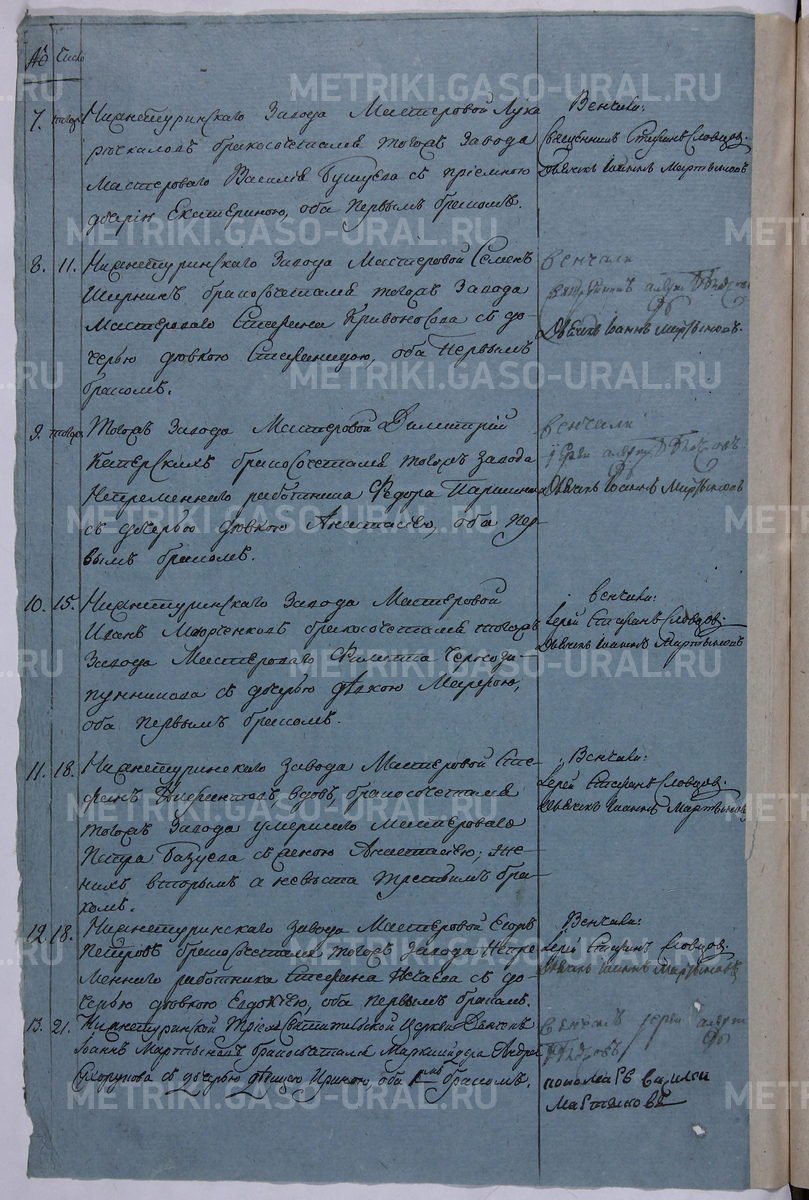 № Число
7. тогож Нижнетуринскаго Завода Мастеровой Лука
бракосочетался тогожъ Завода
Мастероваго Василья Бушуева съ пріемною
дочерію Екатериною, оба первымъ бракомъ.
Венчали:
Священникъ Стефанъ Словцовъ
Дьячекъ Іоаннъ Мартыновъ
8. 11. Нижнетуринскаго Завода Мастеровой Семенъ
бракосочетался тогожъ Завода
Мастероваго Стефана Кривоносова съ до-
черью девкою Стефанидою, оба первымъ
бракомъ.
венчали
Дьячекъ Іоаннъ Мартыновъ.
9. тогож Тогожъ Завода Мастеровой Димитрий
бракосочетался тогожъ Завода
Непременнаго работника Федора Паршина
съ дочерью девкою Анастасіею, оба пер-
вымъ бракомъ.
венчали
Дьячекъ Іоаннъ Мартыновъ
10. 15. Нижнетуринскаго Завода Мастеровой
Иванъ бракосочетался тогожъ
Завода Мастероваго Филиппа
съ дочерью девкою Марфою,
оба первымъ бракомъ.
венчали:
Іерей Стефанъ Словцовъ.
Дьячекъ Іоаннъ Мартыновъ
11. 18. Нижнетуринскаго Завода Мастеровой Сте-
фанъ вдовъ, бракосочетался
тогожъ Завода умершаго Мастероваго
Петра съ женою Анастасіею; же-
нихъ вторымъ а невеста третьимъ бра-
комъ.
Венчали:
Іерей Стефанъ Словцовъ.
Дьячекъ Іоаннъ Мартыновъ
12. 18. Нижнетуринскаго Завода Мастеровой Егоръ
Петровъ бракосочетался тогожъ Завода Непре-
меннаго работника Стефана Нечаева съ до-
черью девкою Евдокіею, оба первымъ бракомъ.
Венчали:
Іерей Стефанъ Словцовъ.
Дьячекъ Іоаннъ Мартыновъ
13. 21. Нижнетуринской Церкви Дьячекъ
Іоаннъ Мартыновъ бракосочетался Маркшейдера Андрея
Сухорукова съ дочерью девицею Ириною, оба 1мъ бракомъ.
венчалъ іерей
пономарь василей
мартыновъ
METRIKI.GASO-URAL.RU